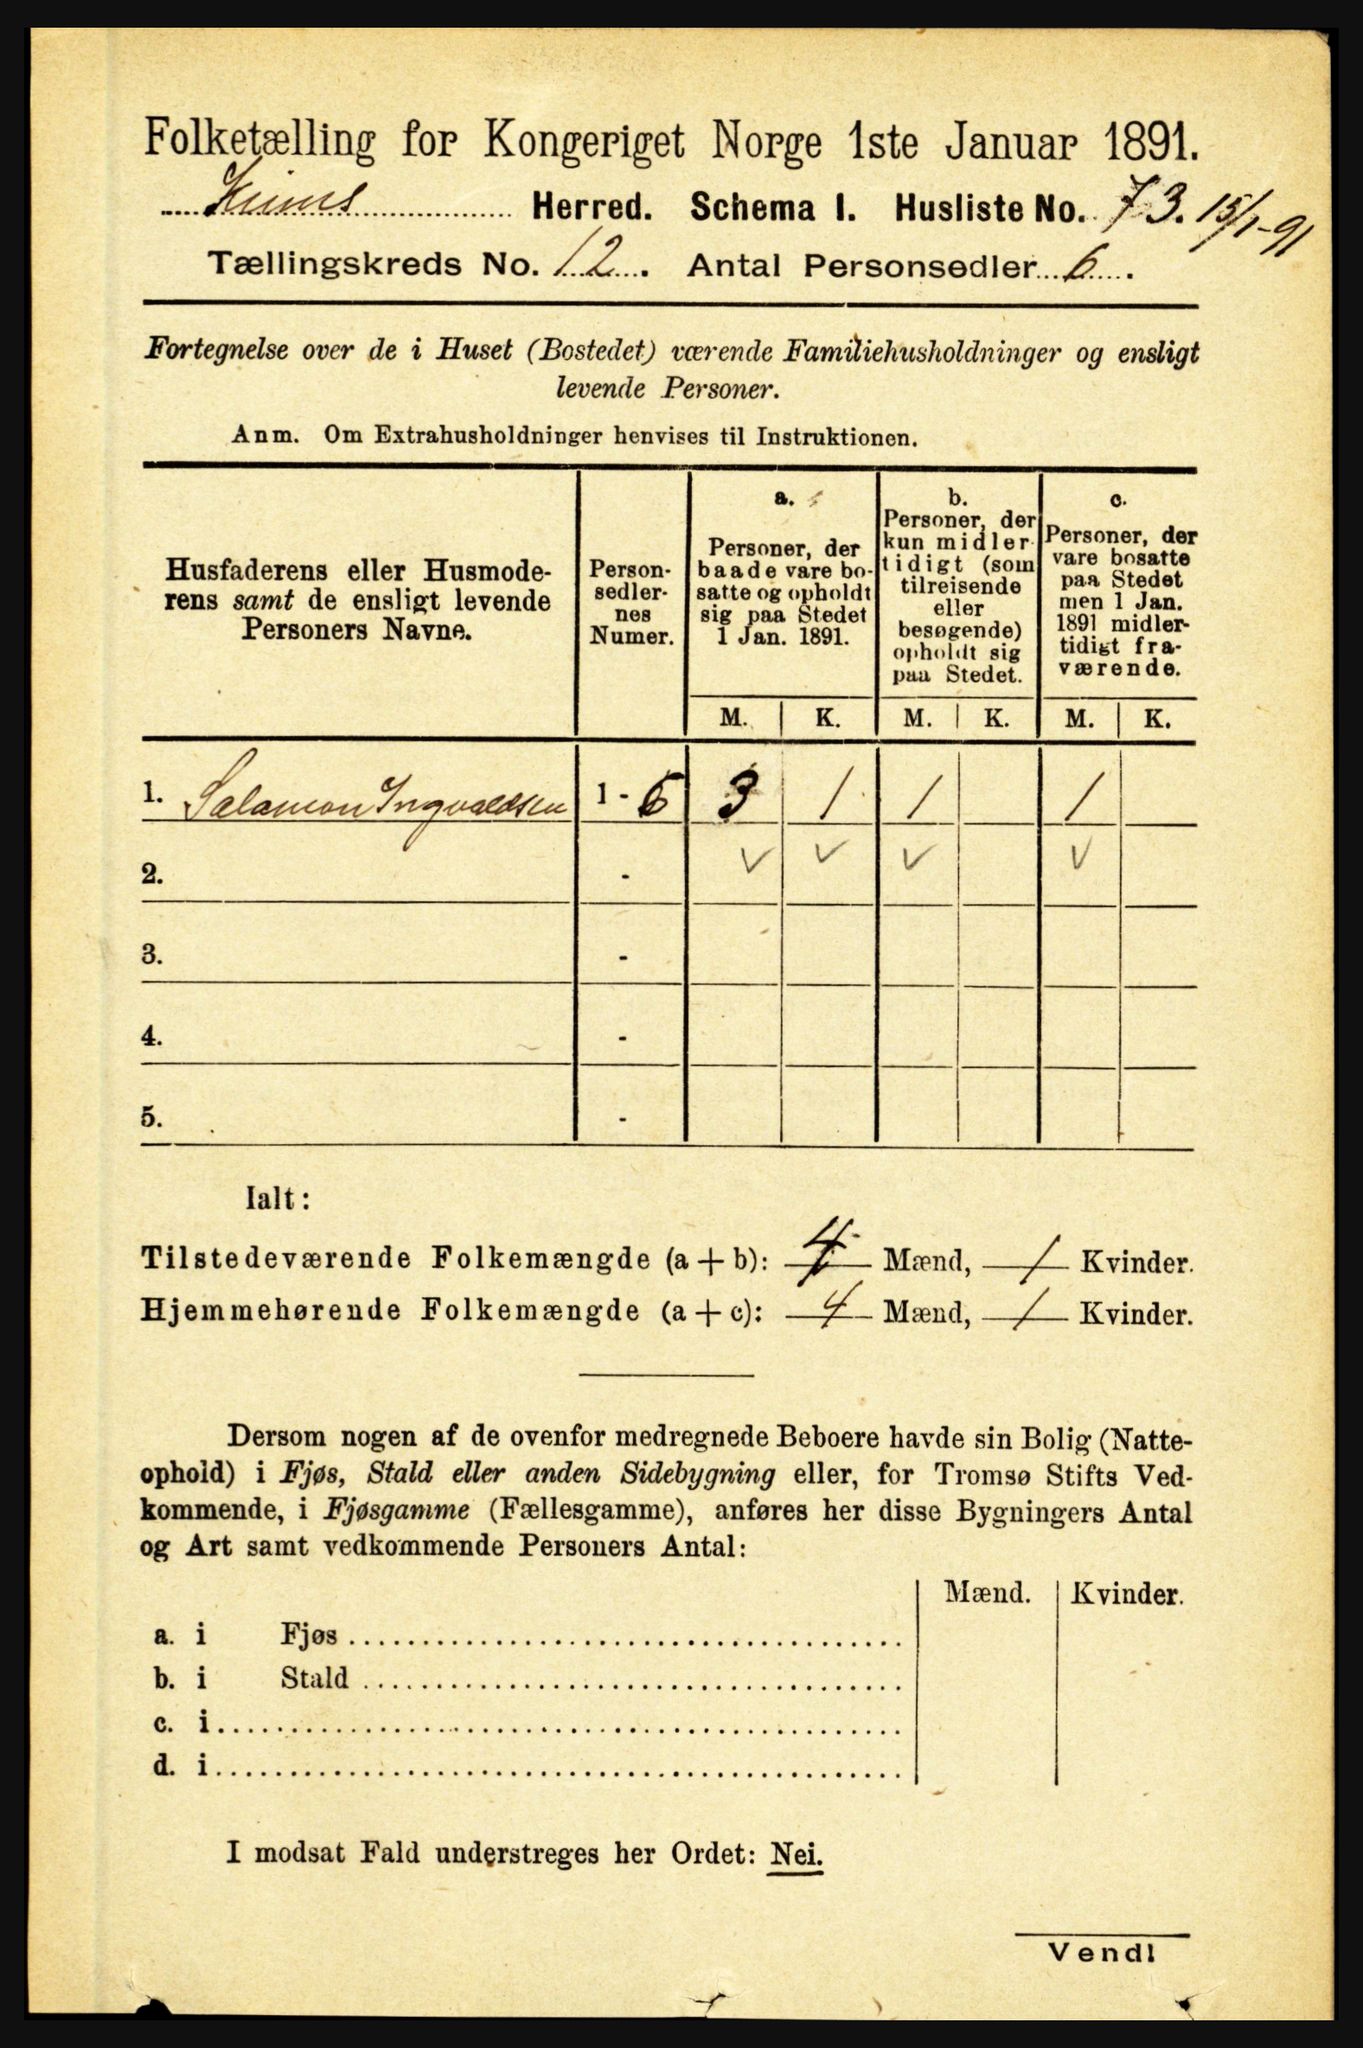 Folketælling for Kongeriget Norge 1ste Januar 1891.
Kinns Herred. Schema I. Husliste No. 73. 15/1-91
Tællingskreds No. 12. Antal Personsedler 6.
Fortegnelse over de i Huset (Bostedet) værende Familiehusholdninger og ensligt
levende Personer.
Anm. Om Extrahusholdninger henvises til Instruktionen.
Husfaderens eller Husmode-
rens samt de ensligt levende
Personers Navne.
Person-
sedler-
nes
Numer.
a.
Personer, der
baade vare bo-
satte og opholdt
sig paa Stedet
1 Jan. 1891.
b.
Personer, der
kun midler-
tidigt (som
tilreisende
eller
besøgende)
opholdt sig
paa Stedet.
c.
Personer, der
vare bosatte
paa Stedet
men 1 Jan.
1891 midler-
tidigt fra-
værende.
M. K. M. K. M. K.
1. Salamon Ingvaldsen 1 - 6 3 1 1 1
2. - ✓ ✓ ✓ ✓
3. -
4. -
5. -
Ialt:
Tilstedeværende Folkemængde (a + b): 4 Mænd, 1 Kvinder.
Hjemmehørende Folkemængde (a + c): 4 Mænd, 1 Kvinder.
Dersom nogen af de ovenfor medregnede Beboere havde sin Bolig (Natte-
ophold) i Fjøs, Stald eller anden Sidebygning eller, for Tromsø Stifts Ved-
kommende, i Fjøsgamme (Fællesgamme), anføres her disse Bygningers Antal
og Art samt vedkommende Personers Antal:
Mænd. Kvinder.
a. i Fjøs
b. i Stald
c. i
d. i
I modsat Fald understreges her Ordet: Nei.
Vend!